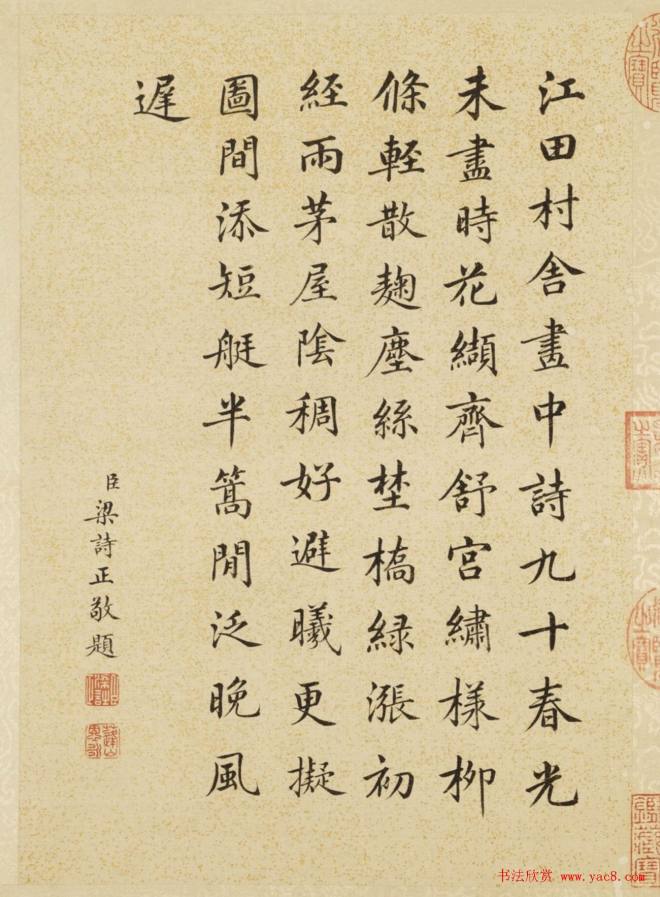 江田村舎畫中詩九十春光
未盡時花纈齊舒宮繡様柳
條輕散麴塵絲埜橋緑漲初
経雨茅屋陰稠好避曦更擬
圖間添短艇半篙閒泛晚風
遲
臣梁詩正敬題
书法欣赏 www.yac8.com